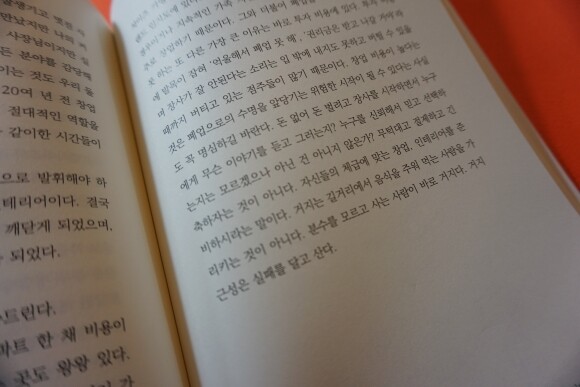 만났지만 나의 꿈
사장님이지만 실
든 분야를 감당해
이는 것도 우리 몫
20여 년 전 창업
절대적인 역할을
같이한 시간들이
으로 발휘해야 하
테리어이다. 결국
깨닫게 되었으며,
되었다.
드린다.
파트 한 채 비용이
곳도 왕왕 있다.
창업하기 때문이다. 그와 더불어 폐업
못 하는 또 다른 가장 큰 이유는 바로 투자 비용에 있다.
에 발목이 잡혀 '억울해서 폐업 못 해', '권리금은 받고 나갈 거야'라
며 장사가 잘 안된다는 소리는 입 밖에 내지도 못하고 버틸 수 있을
때까지 버티고 있는 점주들이 많기 때문이다. 창업 비용이 높다는
것은 폐업으로의 수명을 앞당기는 위험한 시작이 될 수 있다는 사실
도 꼭 명심하길 바란다. 돈 없어 돈 빌려고 장사를 시작하면서 누구
에게 무슨 이야기를 듣고 그러는지? 누구를 신뢰해서 믿고 선택하
는지는 모르겠으나 아닌 건 아니지 않은가? 무턱대고 절제하고 긴
축하자는 것이 아니다. 자신들의 체급에 맞는 창업, 인테리어를 준
비하시라는 말이다. 거지는 길거리에서 음식을 주워 먹는 사람을 가
리키는 것이 아니다. 분수를 모르고 사는 사람이 바로 거지다. 거지
근성은 실패를 달고 산다.